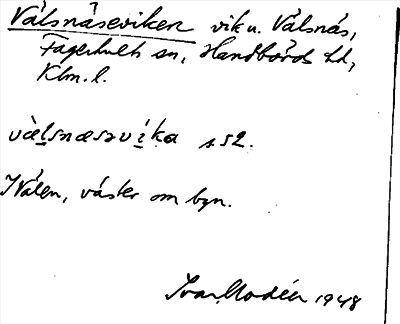 Välsnäseviken vik u. Välsnäs,
Fagerhults sn, Handbörds hd,
Klm. l.
väl̲snæsəvi̲ka s 52.
I Välen, väster om byn.
Ivar Modéer 1948